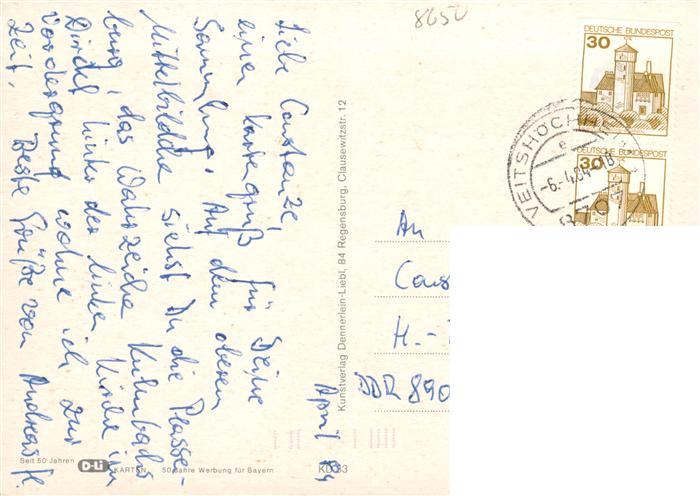 8650
DEUTSCHE BUNDESPOST
30
30
VEITSHÖCHH
e
-6.-4.84-18
8707
April 84
Liebe Constanze,
einen Kartengruß für Deine
Sammlung. Auf dem oberen
Mittelbildchen siehst Du die Plassen-
burg, das Wahrzeichen Kulmbachs
Direkt hinter der linken Kirche im
Vordergrund wohne ich zur
Zeit. Beste Grüße von Andreas H.
Kunstverlag Dennerlein-Liebl, 84 Regensburg, Clausewitzstr. 12
An
Cons
H.-
DDR 890
Seit 50 Jahren
D-Li
KARTEN
50 Jahre Werbung für Bayern
KD 33